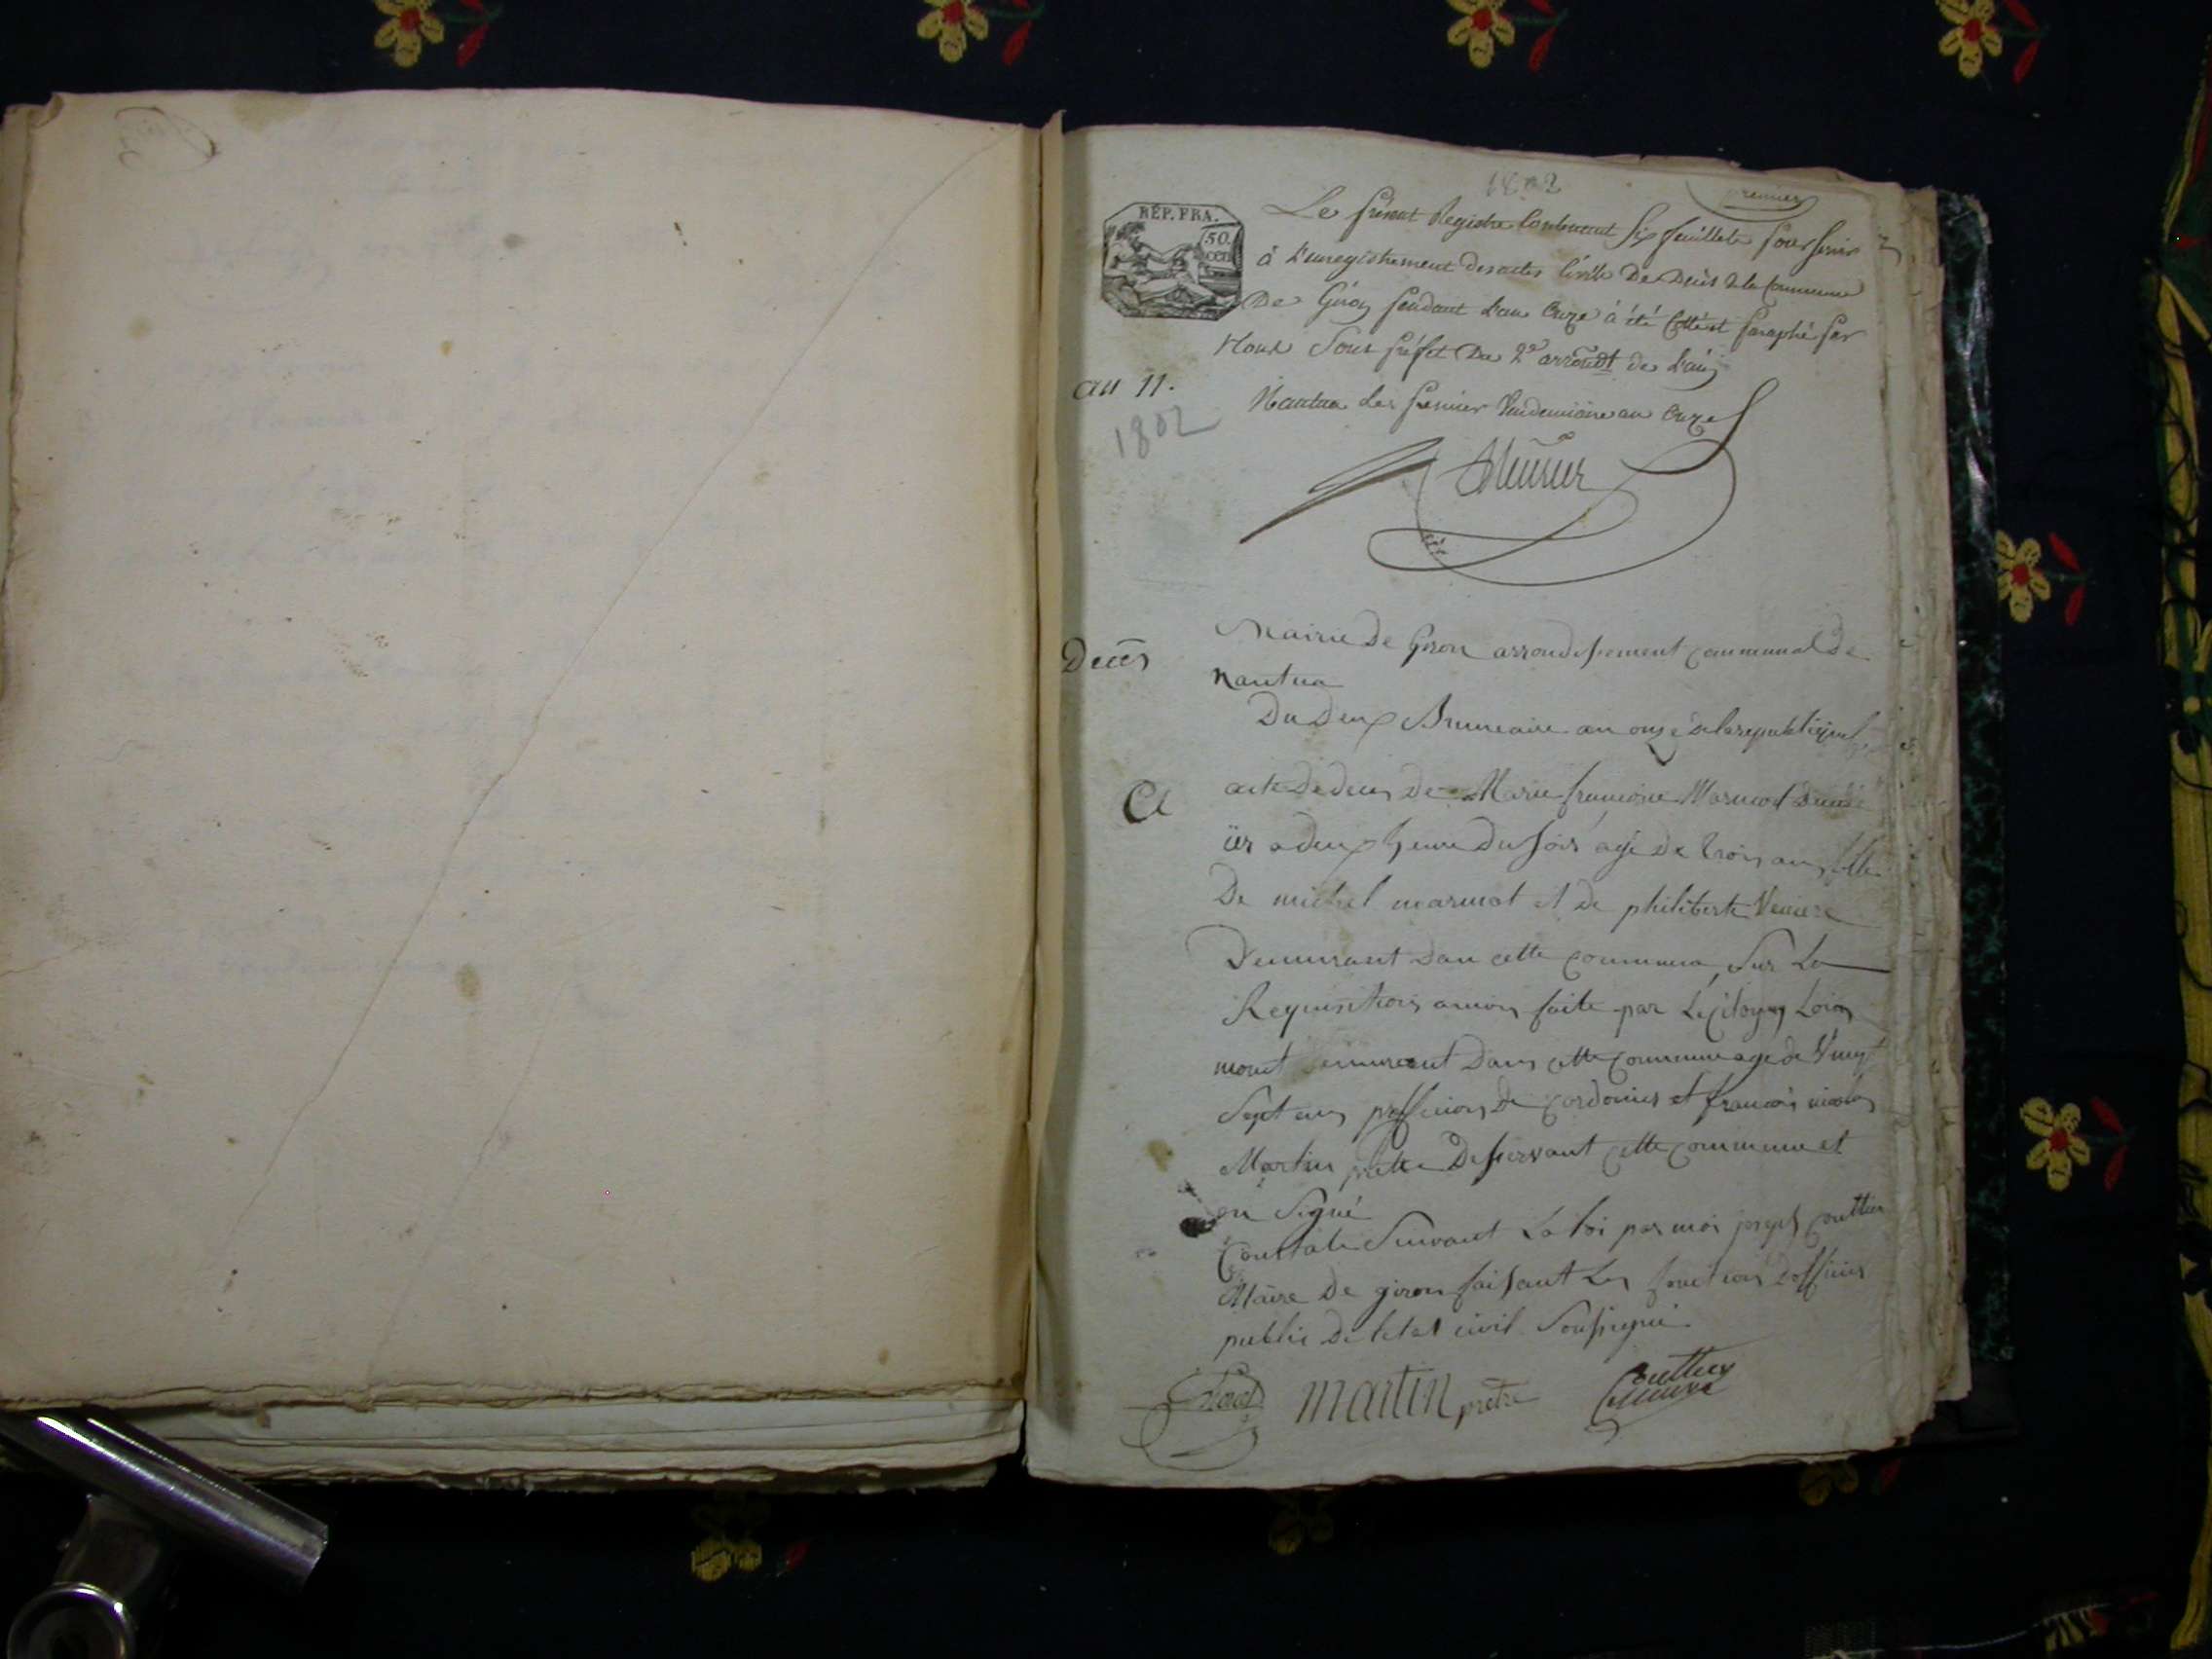 1802
premier
RÉP. FRA.
50.
CEN
Le présent Registre Contenant Six feuillets pour servir
à L'enregistrement des actes Civils De Décès de la Commune
De Giron pendant L'an Onze à été Cotté et paraphé par
Nous Sous préfet Du 2e arrondt de L'ain
an 11.
Nantua Le premier Vendemiaire an Onze
1802
Décès
Mairie De Giron arrondissement communal De
nantua
Du Deux Brumaire an onze de la republique
acte De deces De Marie françoise Marmod décédé
ier a deux heure Du Soir agé De trois ans fille
De michel marmot et De philiberte
Demurant dan cette commune, Sur La
Requisition a moi faite par Le Citoyen
mout demurant Dans cette commune agé de Vingt
Sept ans proffession De cordonier et francois nicolas
Martin prêtre Desservant cette commune et
on Signé
Constaté Suivant La loi par moi joseph Couttier
Maire De giron faisant Les fonctions Dofficier
public De letat civil Soussigné
martin prêtre
Couttier
maire